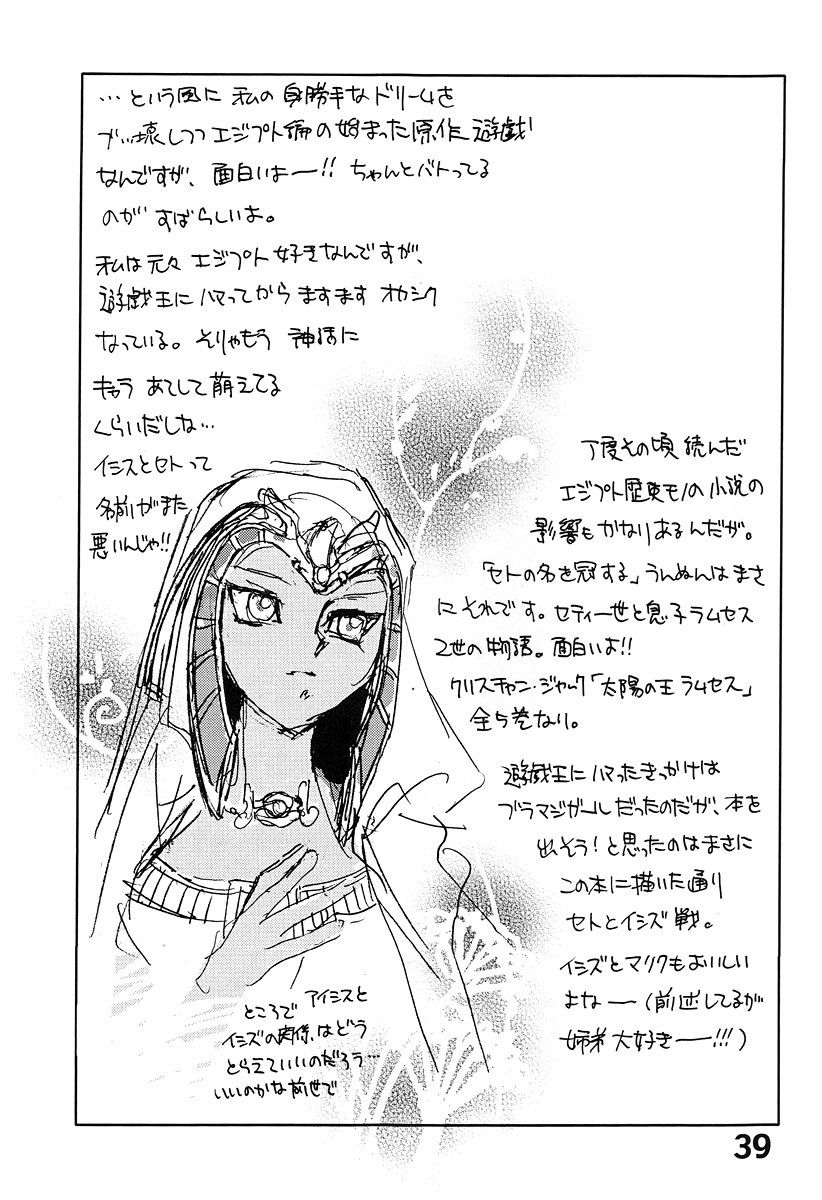 …という風に 私の身勝手なドリームを
ブッ壊しつつエジプト編の始まった原作遊戯
なんですが、面白いよー!! ちゃんとバトってる
のが すばらしいよ。
私は元々エジプト好きなんですが、
遊戯王にハマってから ますます オカシク
なっている。そりゃもう 神話に
キャラ あてして萌えてる
くらいだしな…
イシスとセトって
名前がまた
悪いんじゃ!!
丁度その頃 読んだ
エジプト歴史モノの小説の
影響もかなりあるんだが。
「セトの名を冠する」うんぬんはまさ
にそれです。セティ一世と息子ラムセス
2世の物語。面白いよ!!
クリスチャン・ジャック「太陽の王ラムセス」
全5巻なり。
遊戯王にハマったきっかけは
ブラマジガールだったのだが、本を
出そう!と思ったのはまさに
この本に描いた通り
セトとイシズ戦。
イシズとマリクもおいしい
よなー(前述してるが
姉弟大好きー!!!)
ところで アイシスと
イシズの関係はどう
とらえていいのだろう…
いいのかな前世で
39